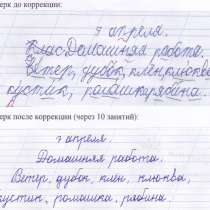 ерк до коррекции:
7 апреля.
Клас Домашняя работа.
Ветер, дубок, клён, клюква
кустик, ромашкрябина.
ерк после коррекции (через 10 занятий):
7 апреля.
Домашняя работа.
Ветер, дубок, клён, клюква,
кустик, ромашка, рябина.